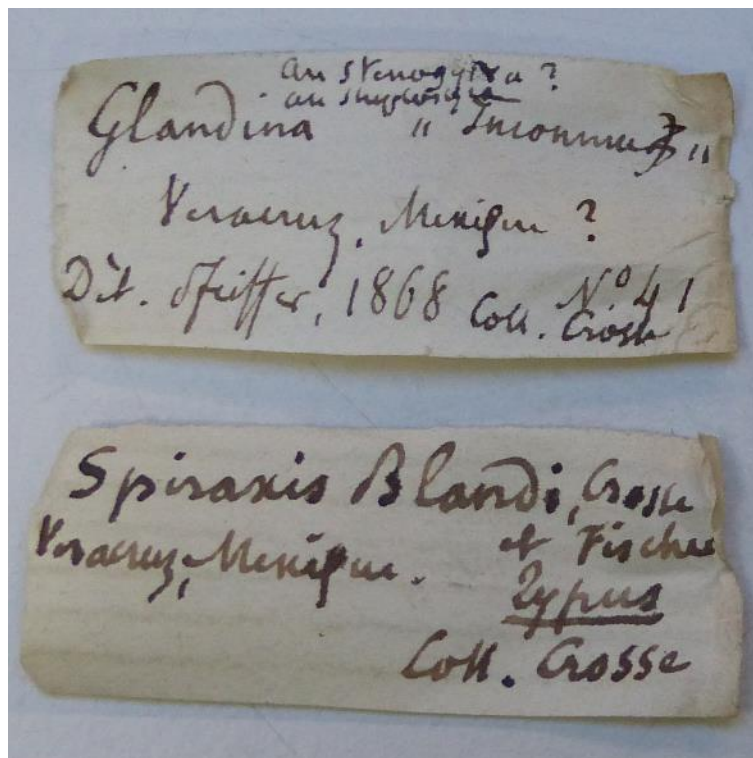 an Stenogyra ?
an
Glandina " Inconnue? "
Veracruz, Mexique ?
Dét. Pfeiffer, 1868 N.º 41
Coll. Crosse
Spiraxis Blandi, Crosse
et Fischer
Veracruz, Mexique.
Typus
Coll. Crosse